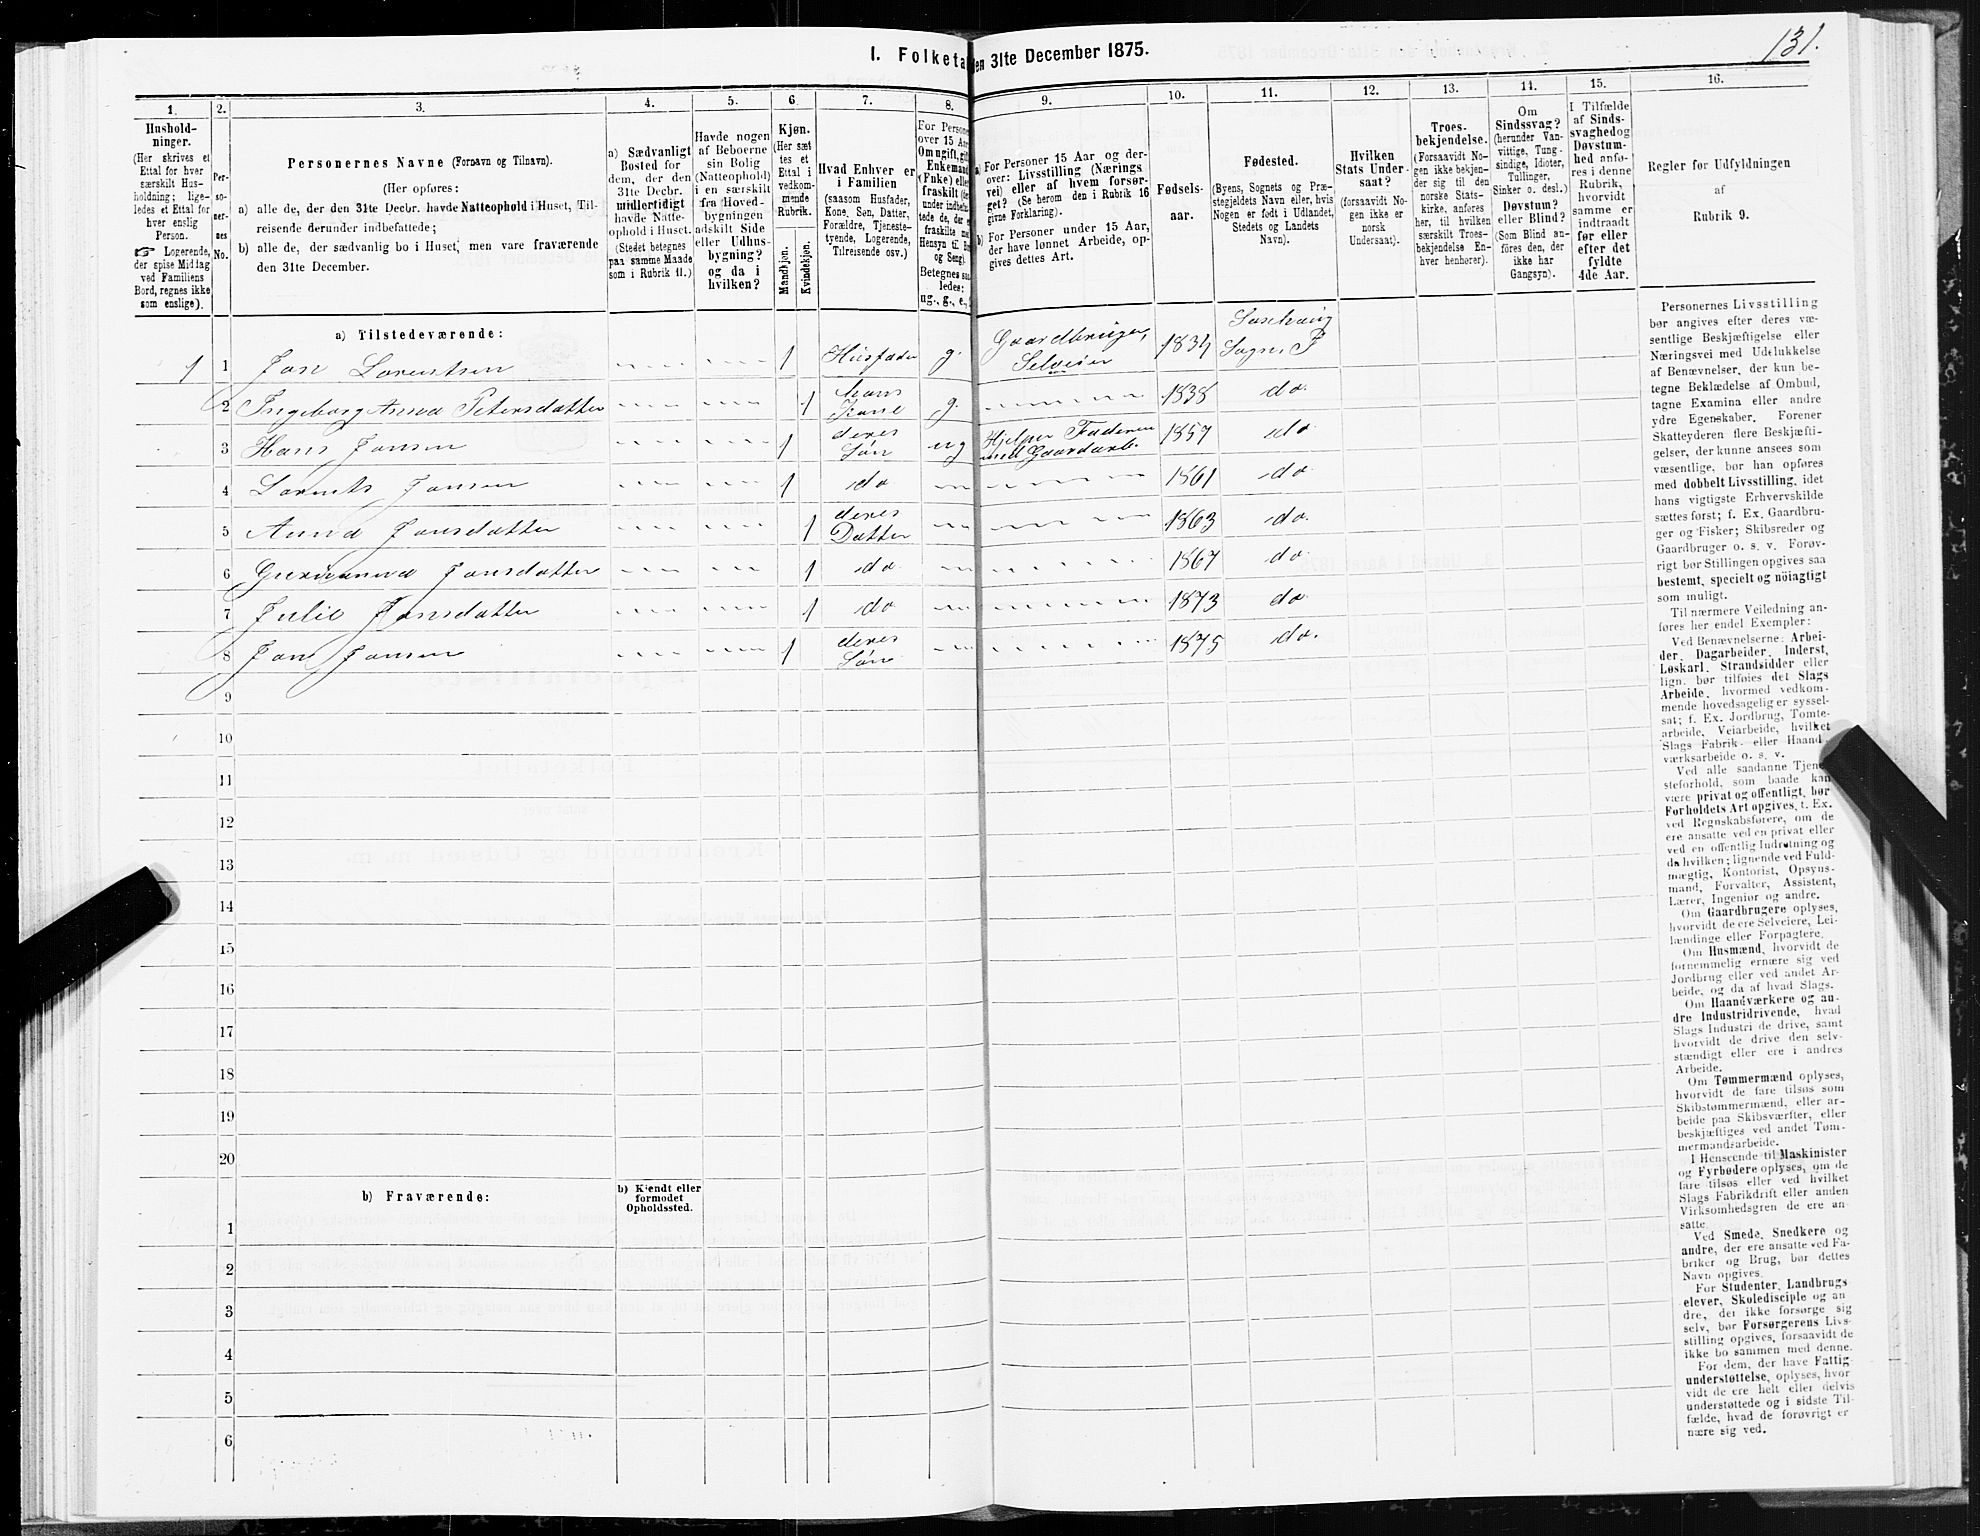 131.
I. Folketal den 31te December 1875.
1.
Hushold-
ninger.
(Her skrives et
Ettal for hver
særskilt Hus-
holdning; lige-
ledes et Ettal for
hver enslig
Person.
☞ Logerende,
der spise Middag
ved Familiens
Bord, regnes ikke
som enslige).
2.
Per-
so-
ner-
nes
No.
3.
Personernes Navne (Fornavn og Tilnavn).
(Her opføres:
a) alle de, der den 31te Decbr. havde Natteophold i Huset, Til-
reisende derunder indbefattede;
b) alle de, der sædvanlig bo i Huset, men vare fraværende
den 31te December.
4.
a) Sædvanligt
Bosted for
dem, der den
31te Decbr.
midlertidigt
havde Natte-
ophold i Huset.
(Stedet betegnes
paa samme Maade
som i Rubrik 11.)
5.
Havde nogen
af Beboerne
sin Bolig
(Natteophold)
i en særskilt
fra Hoved-
bygningen
adskilt Side
eller Udhus-
bygning?
og da i
hvilken?
6.
Kjøn.
(Her sæt
tes et
Ettal i
vedkom-
mende
Rubrik.
Mandkjøn.
Kvindekjøn.
7.
Hvad Enhver er
i Familien
(saasom Husfader,
Kone, Søn, Datter,
Forældre, Tjeneste-
tyende, Logerende,
Tilreisende osv.)
8.
For Persone
over 15 Aa
Om ugift, gif
Enkemand
(Enke) elle
fraskilt
under indbefa
tede de, der
fraskilte me
Hensyn til Bo
og Seng).
Betegnes saa
ledes:
ug., g., e.,
9.
a) For Personer 15 Aar og der-
over: Livsstilling (Nærings
vei) eller af hvem forsør-
get? (Se herom den i Rubrik 16
givne Forklaring).
b) For Personer under 15 Aar,
der have lønnet Arbeide, op-
gives dettes Art.
10.
Fødsels-
aar.
11.
Fødested.
(Byens, Sognets og Præ-
stegjeldets Navn eller, hvis
Nogen er født i Udlandet,
Stedets og Landets
Navn).
12.
Hvilken
Stats Under-
saat?
(forsaavidt No-
gen ikke er
norsk
Undersaat).
13.
Troes-
bekjendelse.
(Forsaavidt No-
gen ikke bekjen-
der sig til den
norske Stats-
kirke, anføres
her, til hvilken
særskilt Troes-
bekjendelse En-
hver henhører).
14.
Om
Sindssvag?
(herunder Van-
vittige, Tung-
sindige, Idioter,
Tullinger,
Sinker o. desl.)
Døvstum?
eller Blind?
(Som Blind an-
føres den, der
ikke har
Gangsyn).
15.
I Tilfælde
af Sinds-
svaghedog
Døvstum-
hed anfø-
res i denne
Rubrik,
hvorvidt
samme er
indtraadt
før eller
efter det
fyldte
4de Aar.
16.
Regler for Udfyldningen
af
Rubrik 9.
a) Tilstedeværende:
1 1 Jon Lorentsen 1 Husfader g. Gaardbruger, Selveier 1834 Sogn P
2 Ingeborg Anna Petersdatter 1 hans Kone g. 1838 do.
3 Hans Jonsen 1 deres Søn ug Hjelper Faderen med Gaardarb. 1857 do
4 Lorents Jonsen 1 do 1861 do
5 Anna Jonsdatter 1 deres Datter 1863 do.
6 Jonsdatter 1 do 1867 do
7 Julie Jonsdatter 1 do 1873 do
8 Jon Jonsen 1 deres Søn 1875 do.
9
10
11
12
13
14
15
16
17
18
19
20
b) Fraværende:
b) Kjendt eller
formodet
Opholdssted.
1
2
3
4
5
6
Personernes Livsstilling
bør angives efter deres væ-
sentlige Beskjæftigelse eller
Næringsvei med Udelukkelse
af Benævnelser, der kun be-
tegne Beklædelse af Ombud,
tagne Examina eller andre
ydre Egenskaber. Forener
Skatteyderen flere Beskjæfti-
gelser, der kunne ansees som
væsentlige, bør han opføres
med dobbelt Livsstilling, idet
hans vigtigste Erhvervskilde
sættes først; f. Ex. Gaardbru-
ger og Fisker; Skibsreder og
Gaardbruger o. s. v. Forøv-
rigt bør Stillingen opgives saa
bestemt, specielt og nöiagtigt
som muligt.
Til nærmere Veiledning an-
føres her endel Exempler:
Ved Benævnelserne: Arbei-
der, Dagarbeider, Inderst,
Løskarl, Strandsidder eller
lign. bør tilføies det Slags
Arbeide, hvormed vedkom-
mende hovedsagelig er syssel-
sat; f. Ex. Jordbrug, Tomte-
arbeide, Veiarbeide, hvilket
Slags Fabrik- eller Haand-
værksarbeide o. s. v.
Ved alle saadanne Tjene-
steforhold, som baade kan
være privat og offentligt, bør
Forholdets Art opgives, f. Ex.
ved Regnskabsførere, om de
ere ansatte ved en privat eller
ved en offentlig Indretning og
da hvilken; lignende ved Fuld-
mægtig, Kontorist, Opsyns-
mand, Forvalter, Assistent,
Lærer, Ingeniør og andre.
Om Gaardbrugere oplyses,
hvorvidt de ere Selveiere, Lei-
lændinge eller Forpagtere.
Om Husmænd, hvorvidt de
fornemmelig ernære sig ved
Jordbrug eller ved andet Ar-
beide, og da af hvad Slags.
Om Haandværkere og an-
dre Industridrivende, hvad
Slags Industri de drive, samt
hvorvidt de drive den selv-
stændigt eller ere i andres
Arbeide.
Om Tømmermænd oplyses,
hvorvidt de fare tilsøs som
Skibstømmermænd, eller ar-
beide paa Skibsværfter, eller
beskjæftiges ved andet Tøm-
mermandsarbeide.
I Henseende til Maskinister
og Fyrbødere oplyses, om de
fare tilsøs eller ved hvilket
Slags Fabrikdrift eller anden
Virksomhedsgren de ere an-
satte.
Ved Smede, Snedkere og
andre, der ere ansatte ved Fa-
briker og Brug, bør dettes
Navn opgives.
For Studenter, Landbrugs
elever, Skoledisciple og an
dre, der ikke forsørge sig
selv, bør Forsørgerens Livs-
stilling opgives, forsaavidt de
ikke bo sammen med denne.
For dem, der have Fattig-
understøttelse, oplyses, hvor
vidt de ere helt eller delvis
understøttede og i sidste Til-
fælde, hvad de forøvrigt er
nære sig ved.